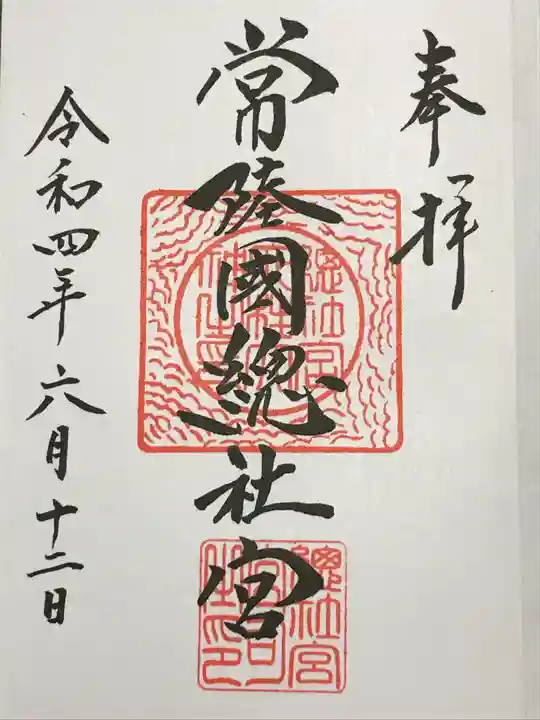 奉拝
常陸國總社宮
令和四年六月十二日